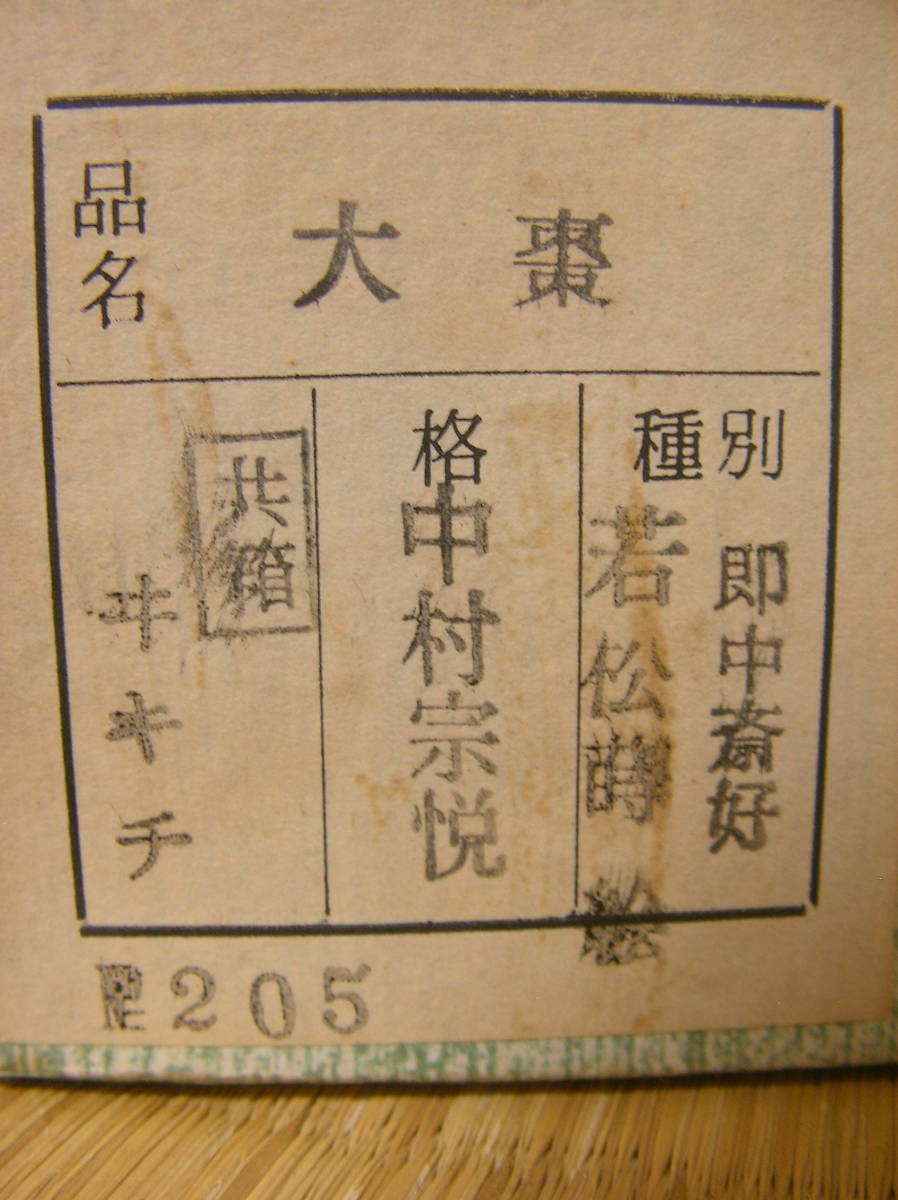 品名
大棗
種別
即中斎好
若松蒔絵
格
中村宗悦
共箱
ヰキチ
205